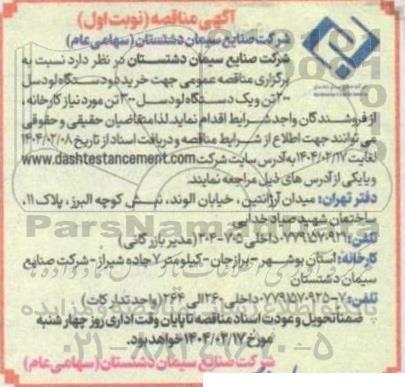 آگهی مناقصه (نوبت اول)
شرکت صنایع سیمان دشتستان (سهامی عام)
شرکت صنایع سیمان دشتستان در نظر دارد نسبت به
برگزاری مناقصه عمومی جهت خرید دو دستگاه لودسل
۲۰۰ تن و یک دستگاه لودسل ۳۰۰ تن مورد نیاز کارخانه،
از فروشندگان واجد شرایط اقدام نماید. لذا متقاضیان حقیقی و حقوقی
می توانند جهت اطلاع از شرایط مناقصه و دریافت اسناد از تاریخ ۱۴۰۴/۰۲/۰۸
لغایت ۱۴۰۴/۰۲/۱۷ به آدرس سایت شرکت www.dashtestancement.com
و یا یکی از آدرس های ذیل مراجعه نمایند.
دفتر تهران: میدان آرژانتین، خیابان الوند، نبش کوچه البرز، پلاک ۱۱،
ساختمان شهید صیاد خدایی
تلفن: ۰۷۷۹۱۵۷۰۹۲۹ داخلی ۷۰۵-۳۰۴ (مدیر بازرگانی)
کارخانه: استان بوشهر - برازجان - کیلومتر ۷ جاده شیراز - شرکت صنایع
سیمان دشتستان
تلفن: ۷-۰۷۷۹۱۵۷۰۹۲۵ داخلی ۲۶۰ الی ۲۶۴ (واحد تدارکات)
ضمنا تحویل و عودت اسناد مناقصه تا پایان وقت اداری روز چهارشنبه
مورخ ۱۴۰۴/۰۲/۱۷ خواهد بود.
شرکت صنایع سیمان دشتستان (سهامی عام)